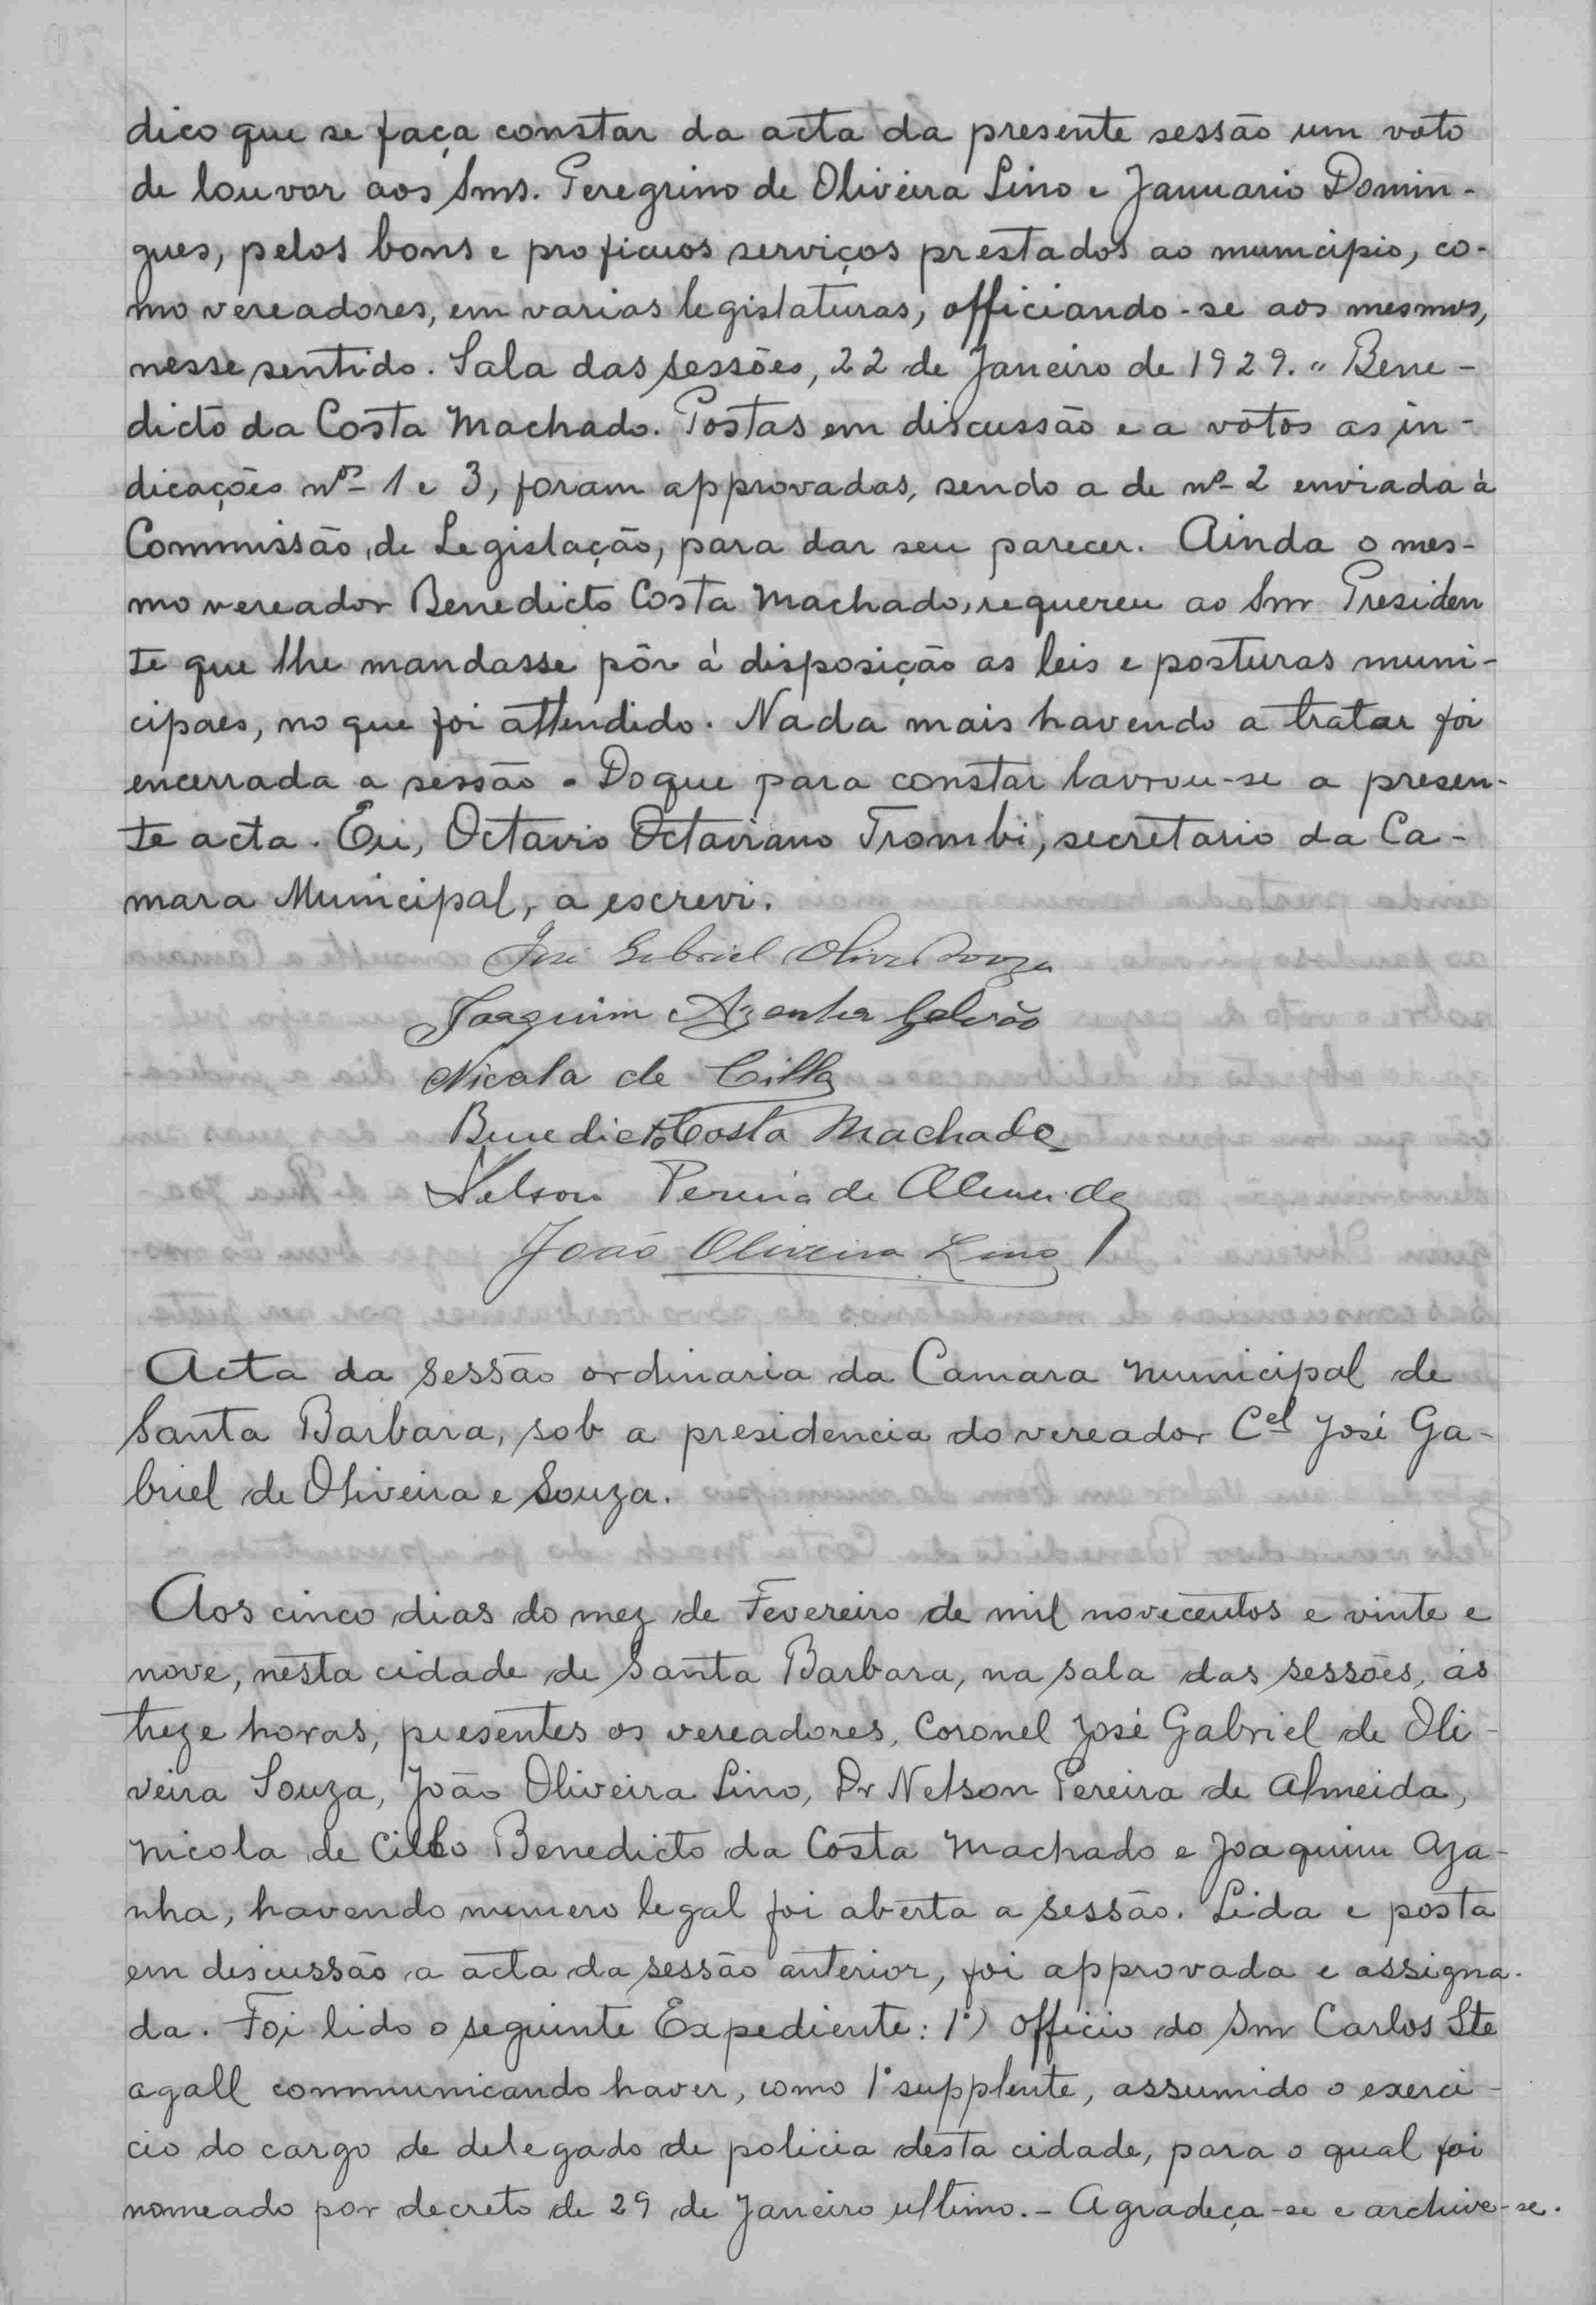 dico que se faça constar da acta da presente sessão um voto
de louvor aos Snrs. Peregrino de Oliveira Lino e Januario Domin-
gues, pelos bons e proficuos serviços prestados ao municipio, co-
mo vereadores, em varias legislaturas, officiando-se aos mesmos,
nesse sentido. Sala das sessões, 22 de Janeiro de 1929." Bene-
dicto da Costa Machado. Postas em discussão e a votos as in-
dicações nos 1 e 3, foram approvadas, sendo a de nº 2 enviada á
Commissão de Legislação, para dar seu parecer. Ainda o mes-
mo vereador Benedicto Costa Machado, requereu ao Snr Presiden
te que lhe mandasse pôr á disposição as leis e posturas muni-
cipaes, no que foi attendido. Nada mais havendo a tratar foi
encerrada a sessão. Do que para constar lavrou-se a presen-
te acta. Eu, Octavio Octaviano Trombi, secretario da Ca-
mara Municipal, a escrevi.
José Gabriel Oliveira Souza
Joaquim Azanha Galvão
Nicola de Cillo
Benedicto Costa Machado
Nelson Pereira de Almeida
João Oliveira Lino
Acta da sessão ordinaria da Camara Municipal de
Santa Barbara, sob a presidencia do vereador Cel José Ga-
briel de Oliveira e Souza.
Aos cinco dias do mez de Fevereiro de mil novecentos e vinte e
nove, nesta cidade de Santa Barbara, na sala das sessões, ás
treze horas, presentes os vereadores, Coronel José Gabriel de Oli-
veira Souza, João Oliveira Lino, Dr Nelson Pereira de Almeida,
Nicola de Cillo Benedicto da Costa Machado e Joaquim Aza-
nha, havendo numero legal foi aberta a sessão. Lida e posta
em discussão a acta da sessão anterior, foi approvada e assigna-
da. Foi lido o seguinte Expediente: 1º) Officio do Snr Carlos Ste
agall communicando haver, como 1º supplente, assumido o exerci-
cio do cargo de delegado de policia desta cidade, para o qual foi
nomeado por decreto de 29 de Janeiro ultimo.- Agradeça-se e archive-se.